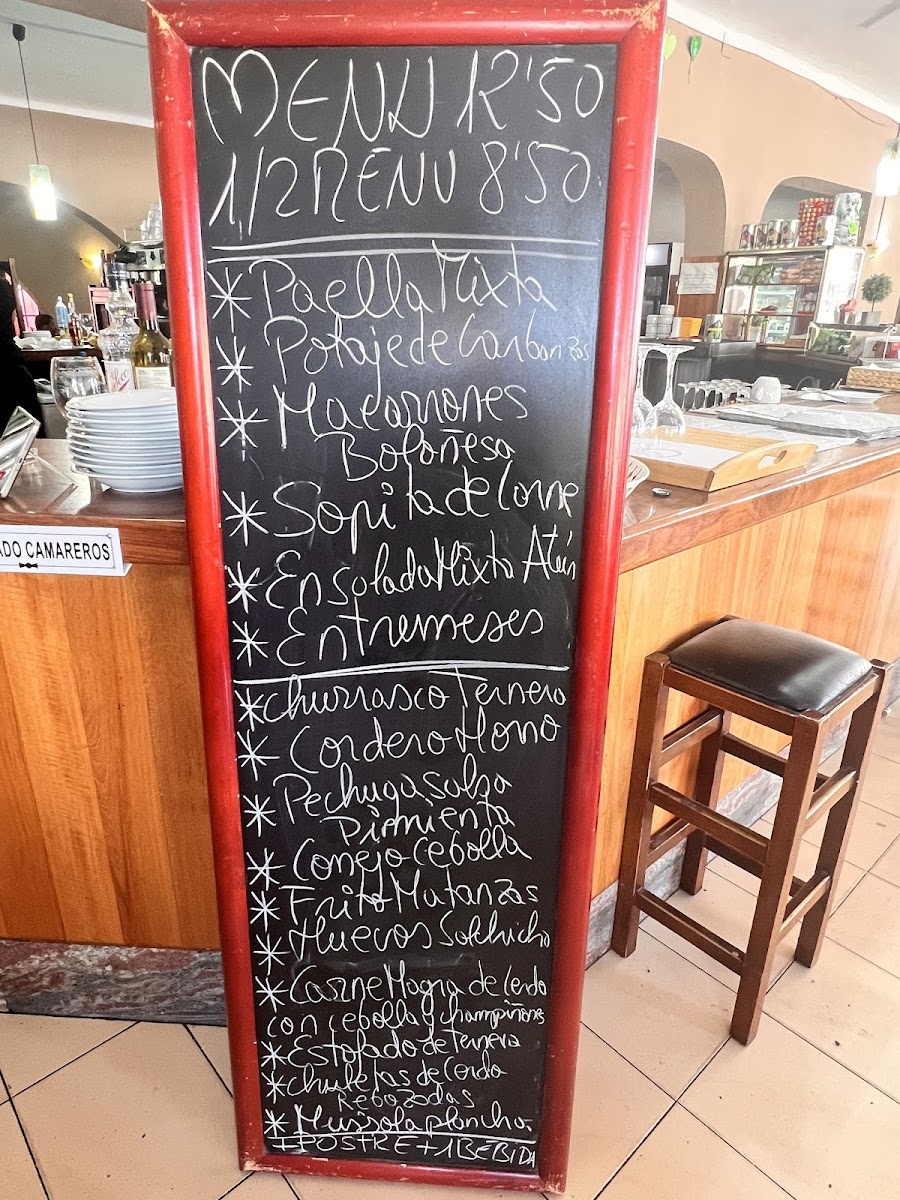 MENU 12'50
1/2 MENU 8'50
* Paella Mixta
* Potaje de Garbanzos
* Macarrones
Boloñesa
* Sopita de Carne
* Ensalada Mixta Atún
* Entremeses
* Churrasco Ternera
* Cordero Horno
* Pechuga Salsa
Pimienta
* Conejo Cebolla
* Frito Matanzas
* Huevos Salchicha
* Carne Magra de Cerdo
con cebolla y champiñones
* Estofado de Ternera
* Chuletas de Cerdo
Rebozadas
* Mussola plancha
+ POSTRE + 1 BEBIDA
ADO CAMAREROS